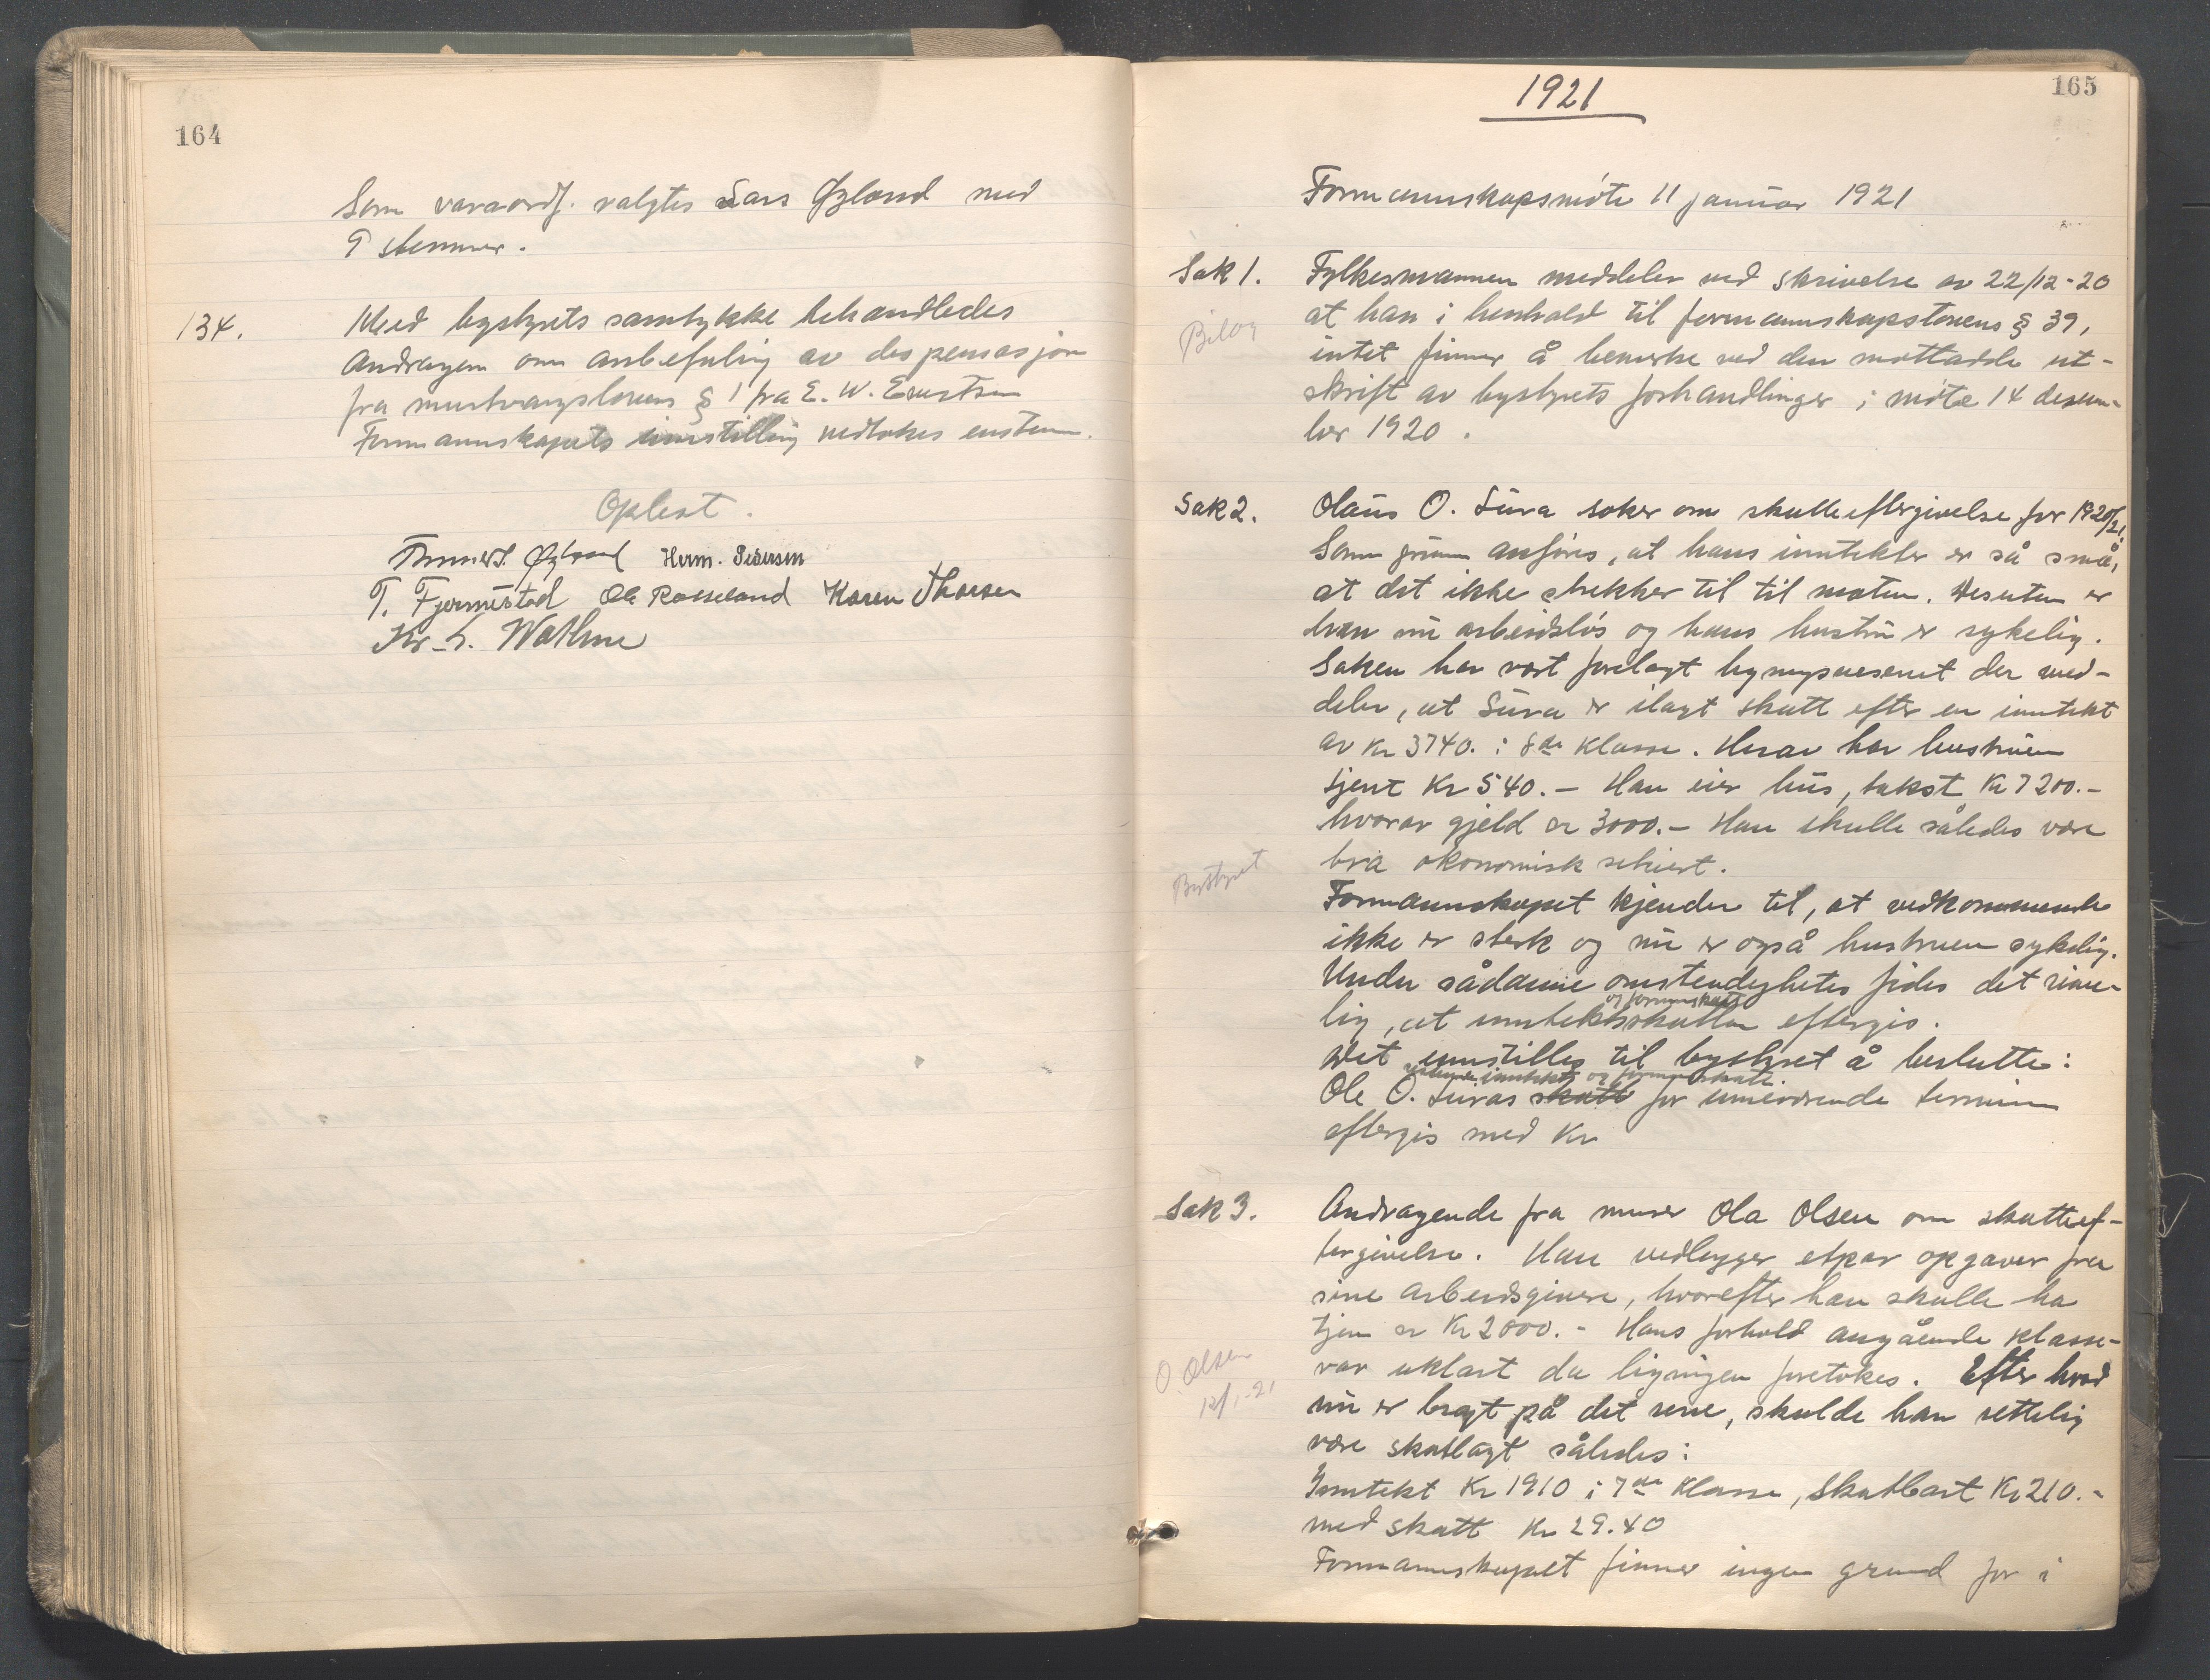 164
Som varaordf. valgtes Lars Øgland med
9 stemmer.
134.
Med bystyrets samtykke behandledes
Andragen om anbefaling av dispensasjon
fra mestrangslovens § 1 fra E. W. Evertsen
Formannskapets innstilling vedtokes enstem.
Oplest.
Øgland Herm. Pedersen
T. Fjermestad Ole Rosseland Karen Thorsen
Kr. S. Wathne
165
1921
Formannskapsmøte 11 januar 1921
Sak 1.
Fylkesmannen meddeler ved skrivelse av 22/12-20
at han i henhold til formannskapslovens § 39,
Bilag
intet finner å bemerke ved den mottadde ut-
skrift av bystyrets forhandlinger i møte 14 desem-
ber 1920.
Sak 2.
Olaus O. Lura søker om skatteeftergivelse for 1920/21.
Som grunn anføres, at hans inntekter er så små,
at det ikke strekker til til maten. Desuten er
han nu arbeidsløs og hans hustru er sykelig.
Saken har vært forelagt ligningsvesenet der med-
deler, at Lura er ilagt skatt efter en inntekt
av Kr 3740. i 8de klasse. Herav har hustruen
tjent Kr 540.- Han eier hus, takst Kr 7200.-
hvorav gjeld er 3000.- Han skulle således være
bra økonomisk situert.
Bystyret
Formannskapet kjender til, at vedkommende
ikke er sterk og nu er også hustruen sykelig.
Under sådanne omstendigheter findes det rime-
og formueskatt
lig, at inntektsskatten eftergis.
Det innstilles til bystyret å beslutte:
inntekts og formueskatt
Ole O. Luras skatt for inneværende termin
eftergis med Kr
Sak 3.
Andragende fra murer Ola Olsen om skatteef-
tergivelse. Han vedlegger etpar opgaver fra
sine arbeidsgivere, hvorefter han skulle ha
tjen er Kr 2000.- Hans forhold angående klasse-
O. Olsen
12/1-21
var uklart da ligningen foretokes. Efter hvad
nu er bragt på det rene, skulde han rettelig
være skatlagt således:
Inntekt Kr 1910 i 7de klasse, skatbart Kr 210.-
med skatt Kr 29.40
Formannskapet finner ingen grund for i